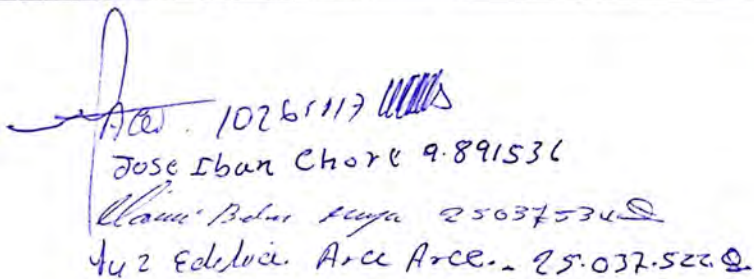 10265117
Jose Iban Chore 9.891536
25037534
Luz Edilvia Arce Arce. - 25.037.522.